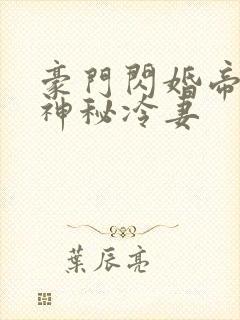 豪門閃婚帝
神秘冷妻
葉辰亮